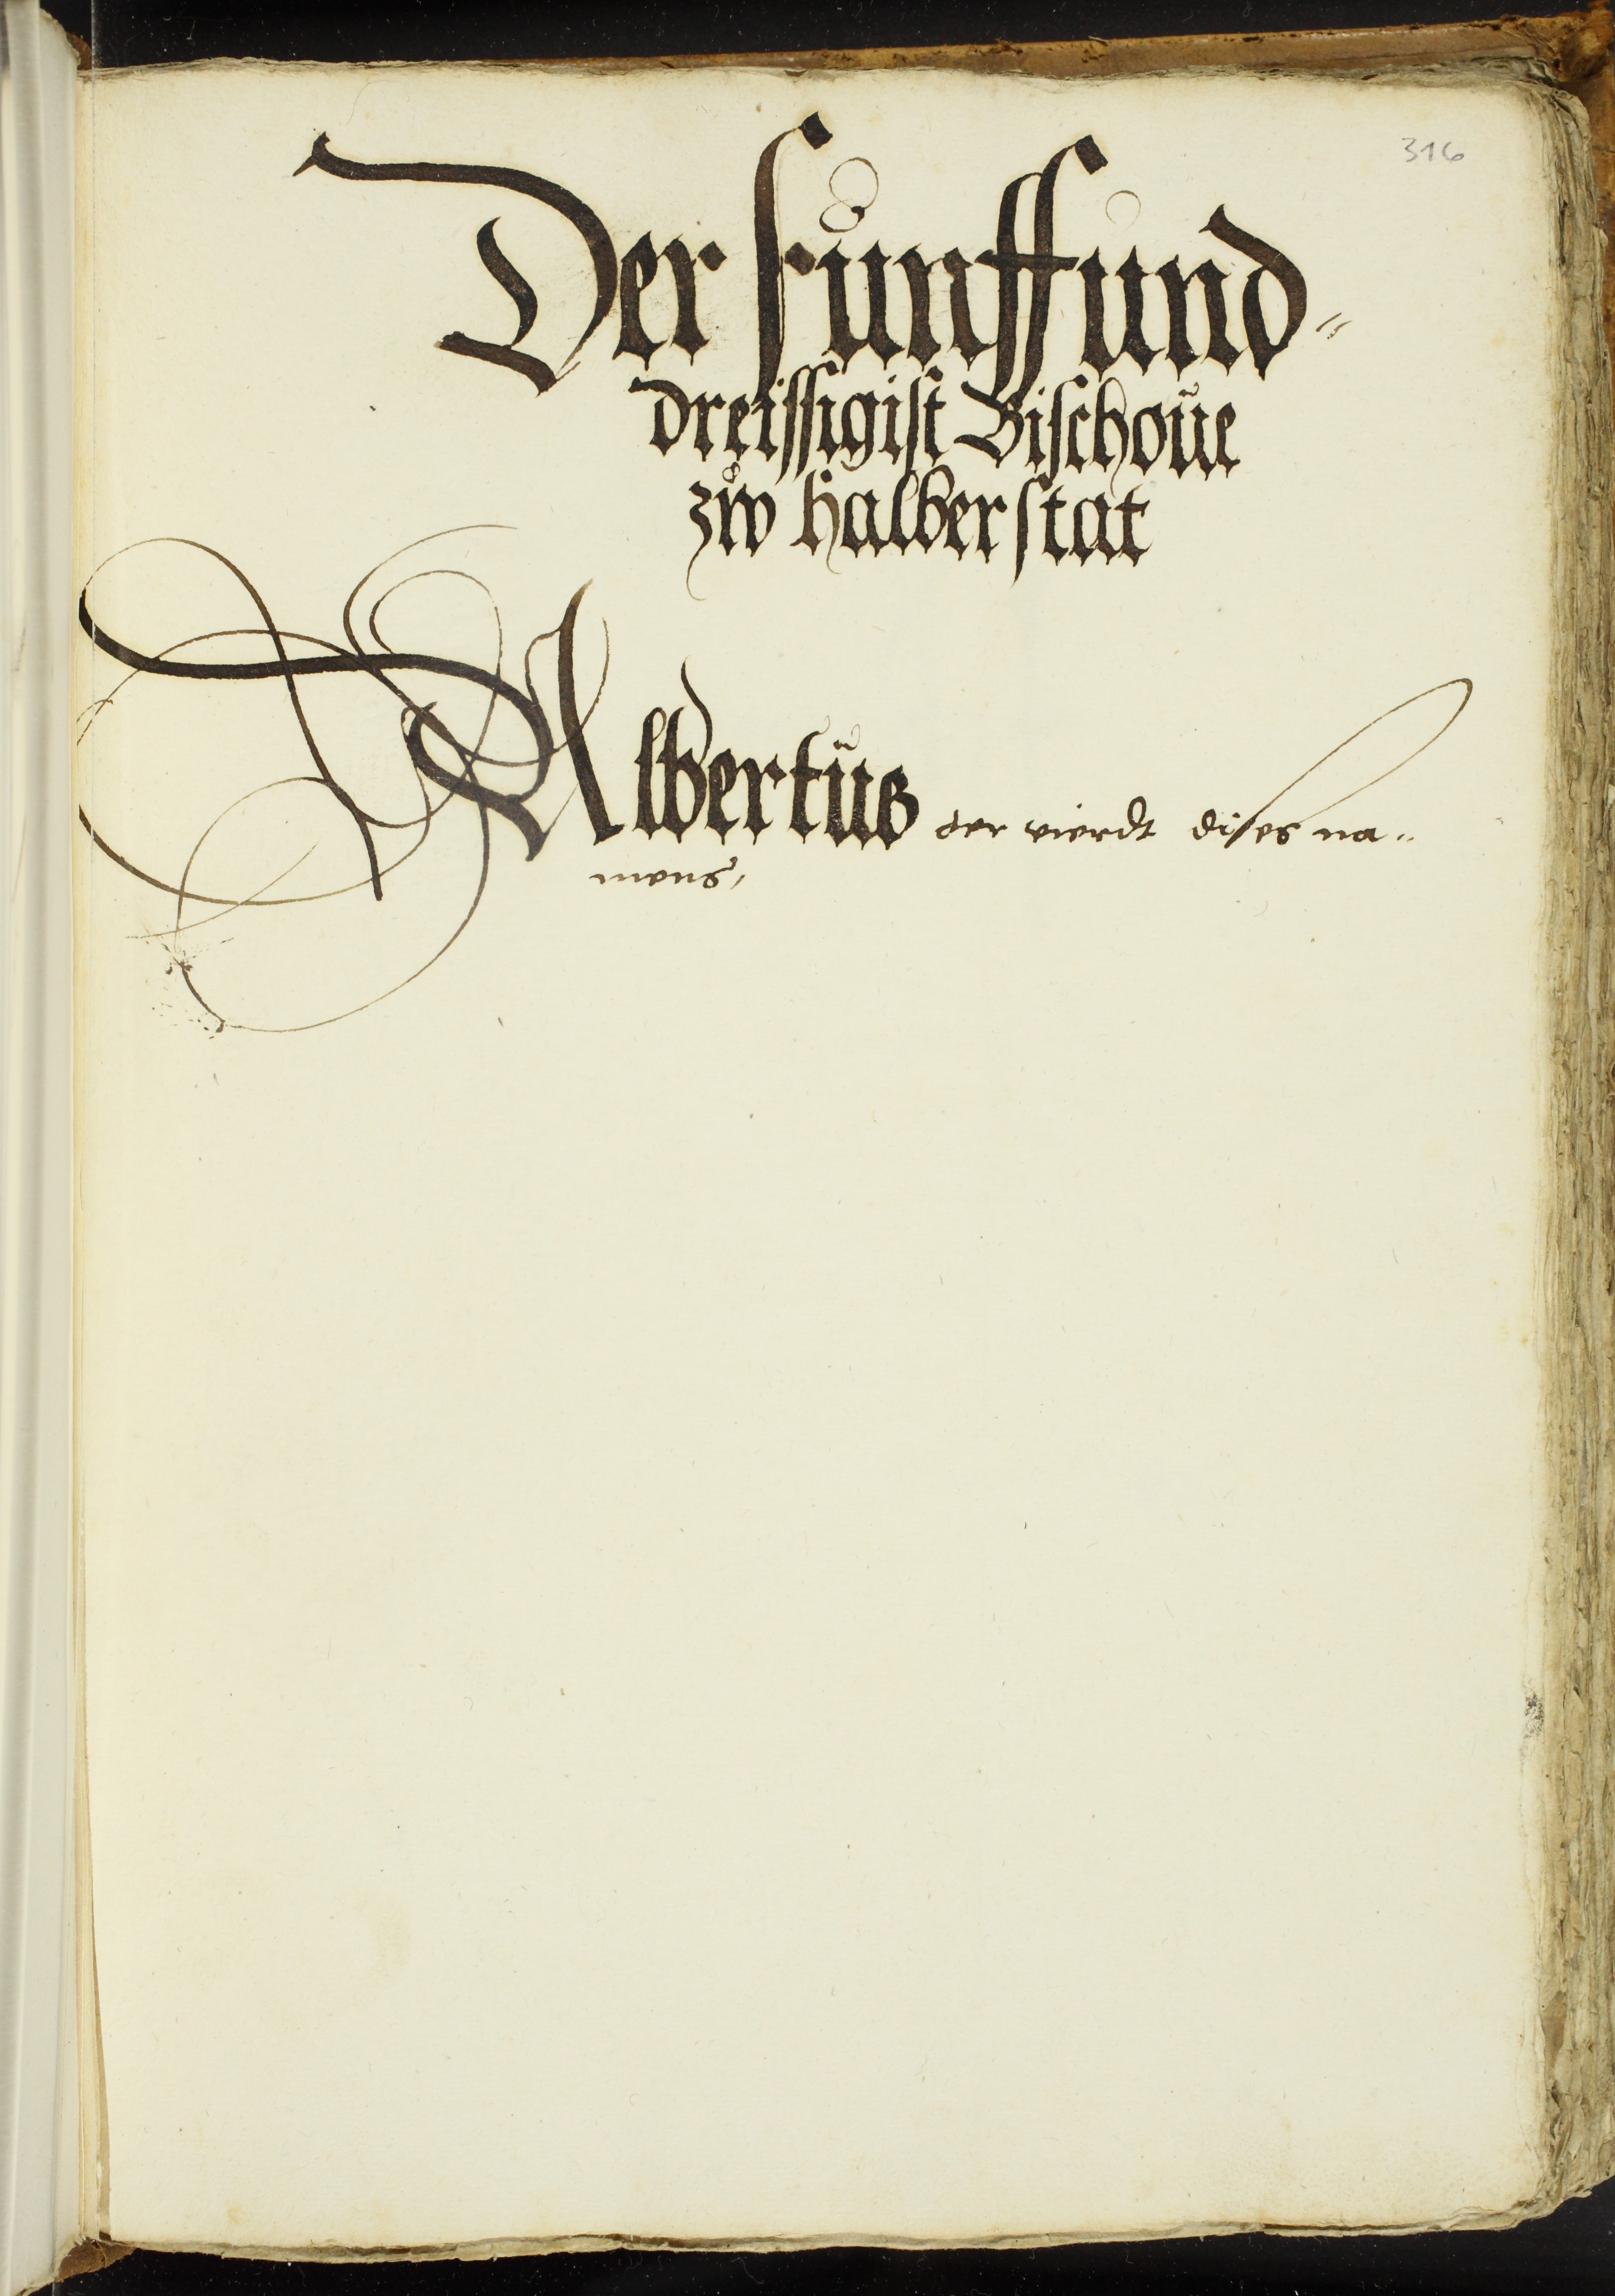 316
Der fünffund-
dreissigist Bischoue
zw halberstat
Albertus der vierdt dises na-
mens,